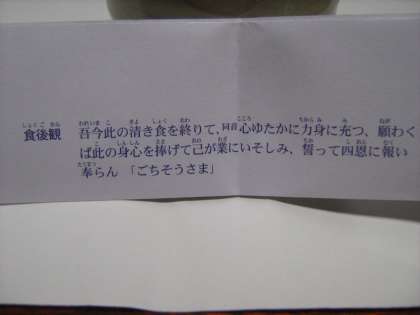 食後観 吾今此の清き食を終りて、同音心ゆたかに力身に充つ、願わく
ば此の身心を捧げて己が業にいそしみ、誓って四恩に報い
奉らん 「ごちそうさま」